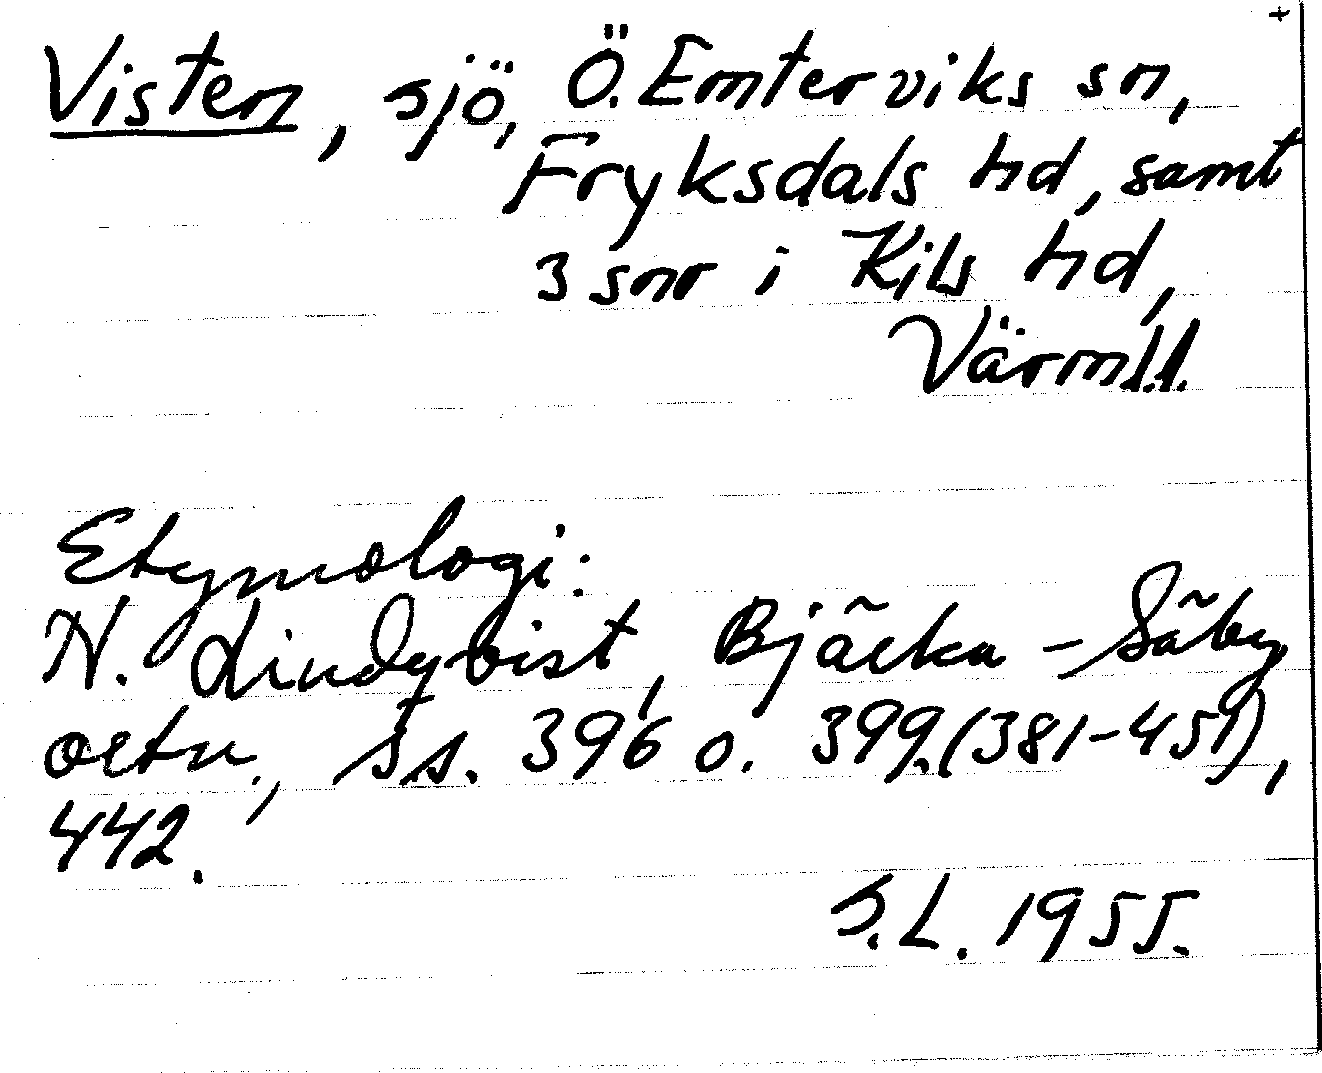 +
Visten, sjö, Ö. Emterviks sn,
Fryksdals hd, samt
3 snr i Kils hd,
Värml.
Etymologi:
N. Lindqvist, Bjärka-Säby
ortn., ss. 396 o. 399. (381-451),
442.
S.L. 1955.